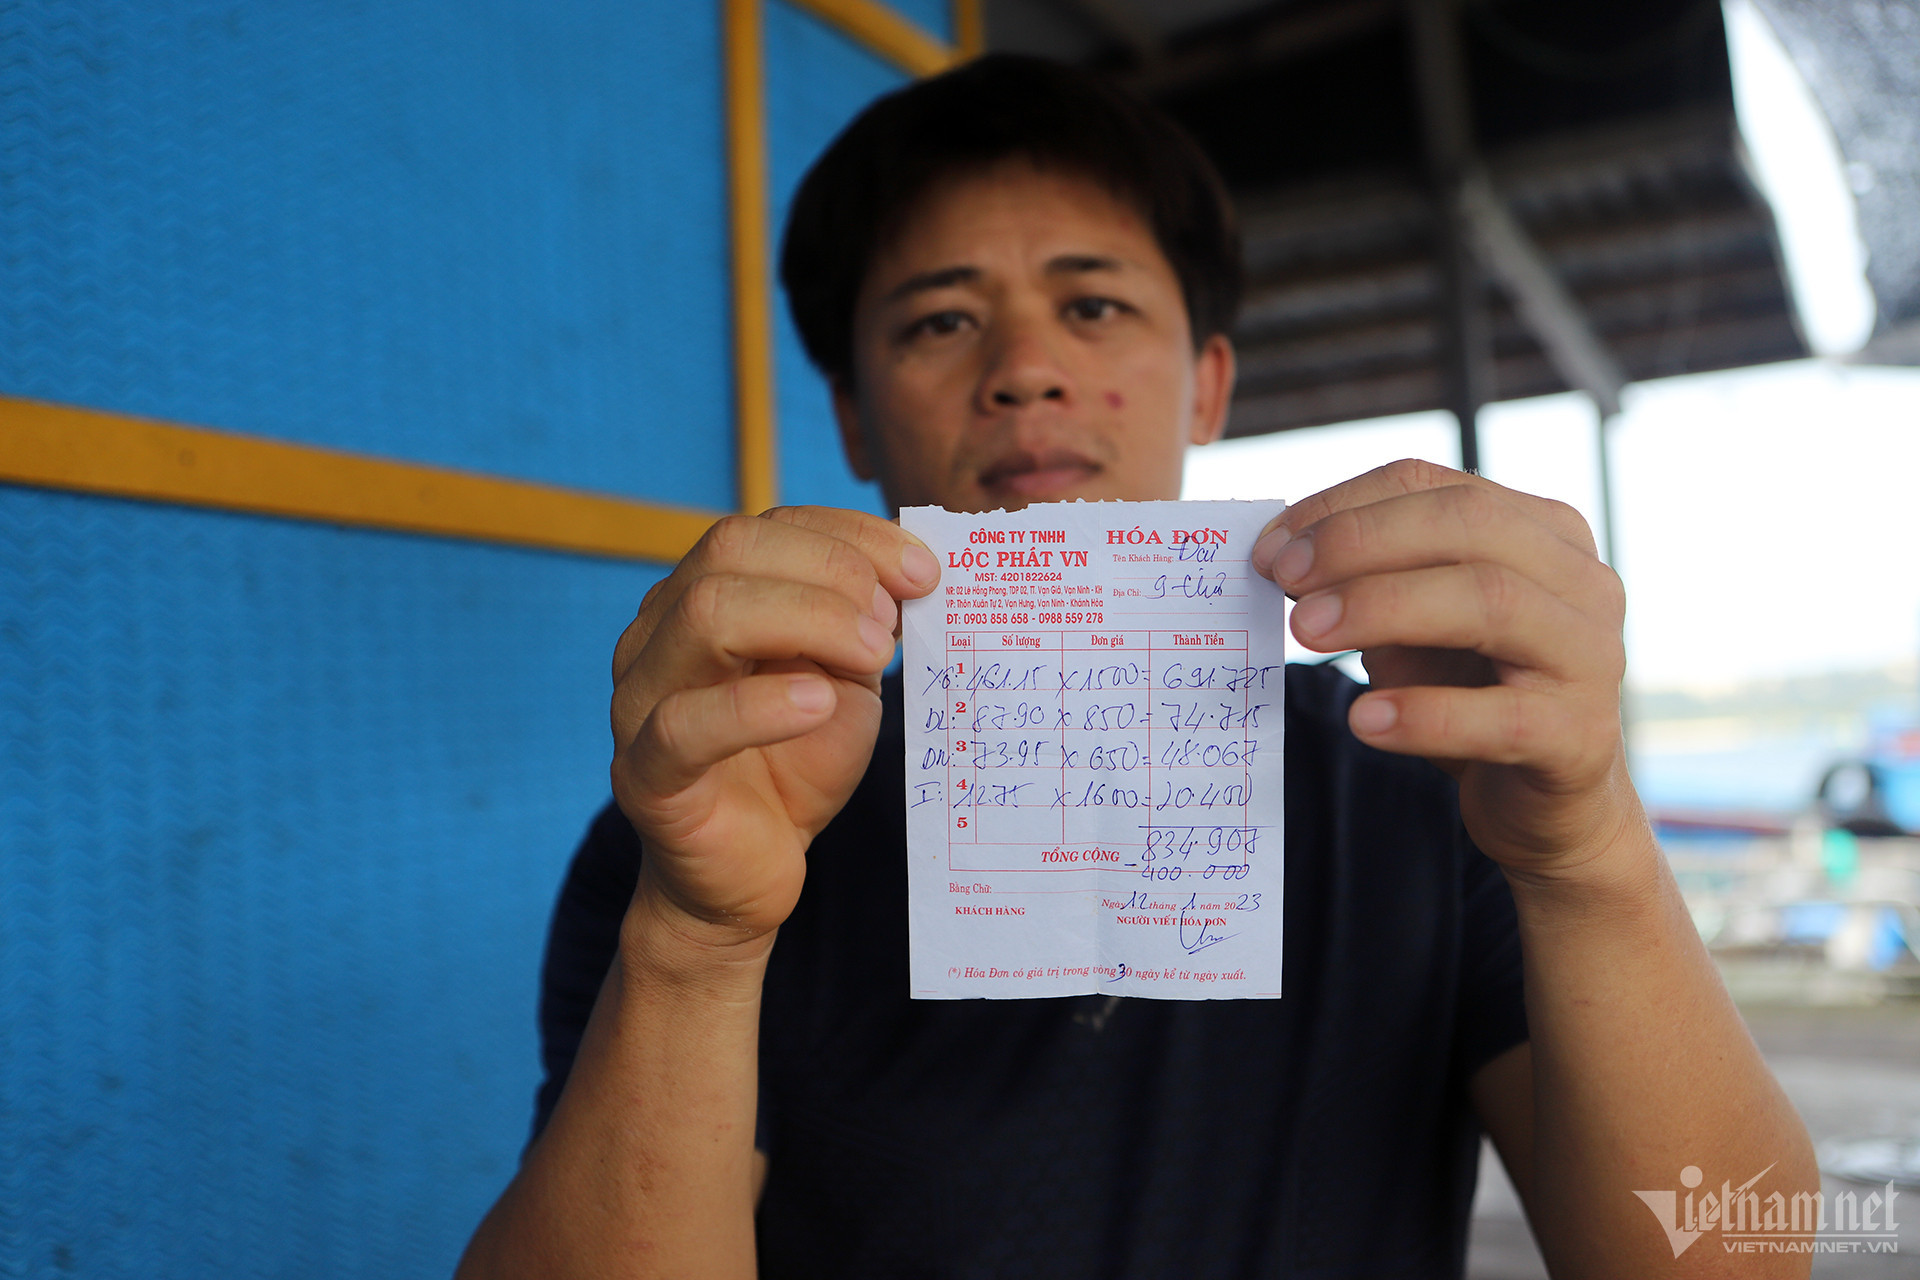 CÔNG TY TNHH
LỘC PHÁT VN
MST: 4201822624
NR: 02 Lê Hồng Phong, TDP 02, TT. Vạn Giã, Vạn Ninh - KH
VP: Thôn Xuân Tự 2, Vạn Hưng, Vạn Ninh - Khánh Hòa
ĐT: 0903 858 658 - 0988 559 278
HÓA ĐƠN
Tên Khách Hàng: Đại
Địa Chỉ:
Loại Số lượng Đơn giá Thành Tiền
1 X6: 461.15 x 1500 = 691.725
2 DL: 87.90 x 850 = 74.715
3 DN: 73.95 x 650 = 48.067
4 I: 12.75 x 1600 = 20.400
5
TỔNG CỘNG 834.907
- 400.000
Bằng Chữ:
Ngày 12 tháng 1 năm 2023
KHÁCH HÀNG NGƯỜI VIẾT HÓA ĐƠN
(*) Hóa Đơn có giá trị trong vòng 30 ngày kể từ ngày xuất.
Vietnamnet
VIETNAMNET.VN